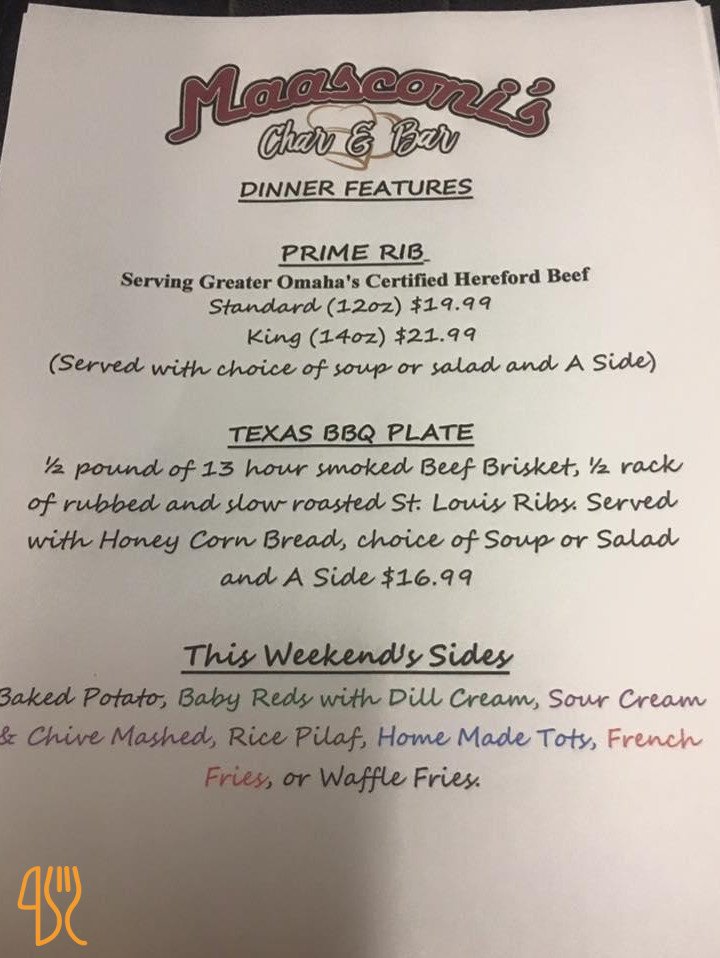 Maasconi's
Char & Bar
DINNER FEATURES
PRIME RIB
Serving Greater Omaha's Certified Hereford Beef
Standard (12oz) $19.99
King (14oz) $21.99
(Served with choice of soup or salad and A Side)
TEXAS BBQ PLATE
½ pound of 13 hour smoked Beef Brisket, ½ rack
of rubbed and slow roasted St. Louis Ribs. Served
with Honey Corn Bread, choice of Soup or Salad
and A Side $16.99
This Weekend's Sides
Baked Potato, Baby Reds with Dill Cream, Sour Cream
& Chive Mashed, Rice Pilaf, Home Made Tots, French
Fries, or Waffle Fries.